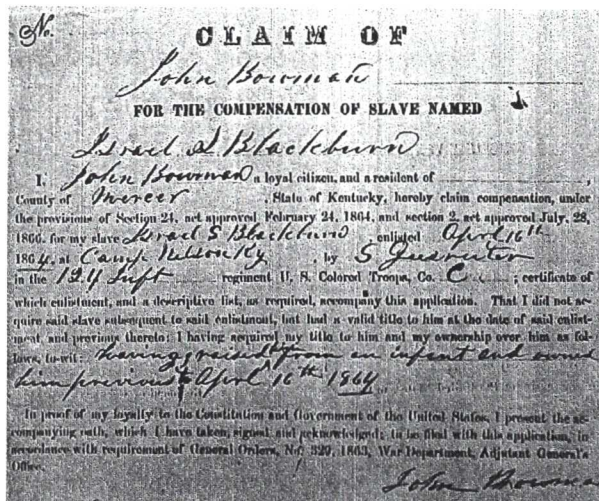 No.
CLAIM OF
John Bowman
FOR THE COMPENSATION OF SLAVE NAMED
Israel S Blackburn
I, John Bowman a loyal citizen, and a resident of ,
County of Mercer , State of Kentucky, hereby claim compensation, under
the provisions of Section 24, act approved February 24, 1864, and section 2, act approved July, 28,
1866, for my slave Israel S Blackburn enlisted April 16th
1864, at Camp Nelson Ky , by S
in the 124 Inft regiment U. S. Colored Troops, Co. C ; certificate of
which enlistment, and a descriptive list, as required, accompany this application. That I did not ac-
quire said slave subsequent to said enlistment, but had a valid title to him at the date of said enlist-
ment, and previous thereto; I having acquired my title to him and my ownership over him as fol-
lows, to-wit: having raised from an infant and owned
him previous to April 16th 1864
In proof of my loyalty to the Constitution and Government of the United States, I present the ac-
companying oath, which I have taken, signed and acknowledged; to be filed with this application, in
accordance with requirement of General Orders, No. 329, 1863, War Department, Adjutant General's
Office.
John Bowma